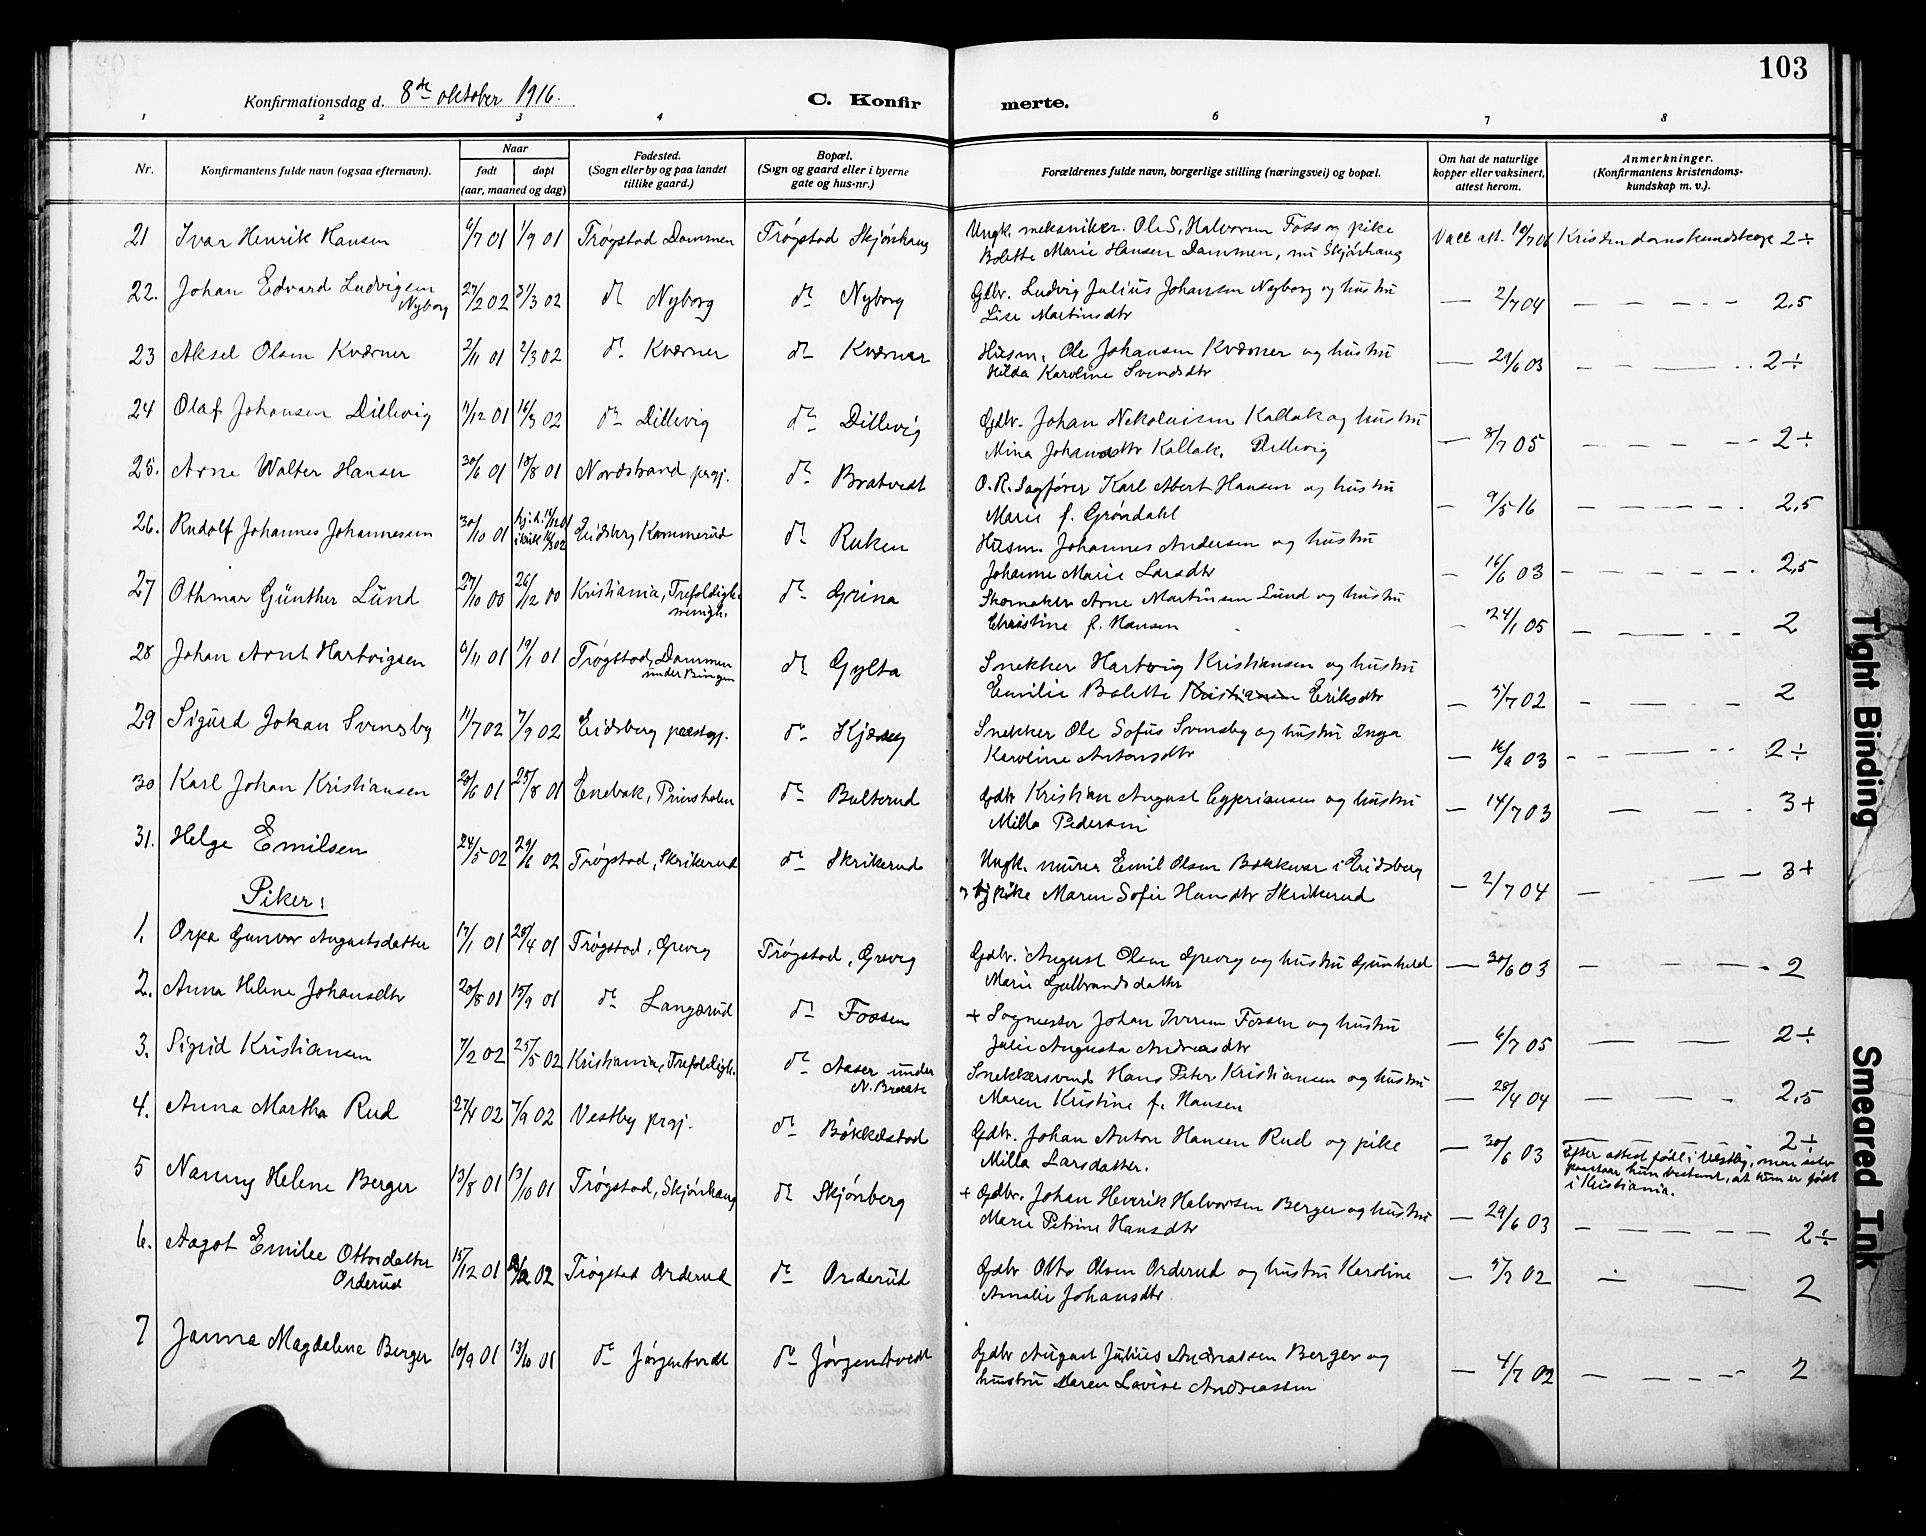 103
Konfirmationsdag d. 8de oktober 1916.
C. Konfirmerte.
1 2 3 4 5 6 7 8
Nr. Konfirmantens fulde navn (ogsaa efternavn). Naar født døpt (aar, maaned og dag) Fødested. (Sogn eller by og paa landet tillike gaard.) Bopæl. (Sogn og gaard eller i byerne gate og hus-nr.) Forældrenes fulde navn, borgerlige stilling (næringsvei) og bopæl. Om hat de naturlige kopper eller vaksinert, attest herom. Anmerkninger. (Konfirmantens kristendomskundskap m. v.).
21 Ivar Henrik Hansen 6/7 01 1/9 01 Trøgstad Dammen Trøgstad Skjønhaug Ungk. mekaniker. Ole S. Halvorsen Foss og pike
Bolette Marie Hansen Dammen, nu Skjønhaug Vacc att. 10/7 06 Kristendomskundskap 2÷
22. Johan Edvard Ludvigsen Nyborg 27/2 02 31/3 02 do Nyborg do Nyborg Gdbr. Ludvig Julius Johansen Nyborg og hustru
Lise Martinsdtr — 2/7 04 — — — — 2,5
23 Aksel Olsen Kværner 2/11 01 2/3 02 do Kværner do Kværner Husm. Ole Johansen Kværner og hustru
Hilda Karoline Svendsdtr — 29/6 03 — — — 2÷
24 Olaf Johansen Dillevig 11/12 01 16/3 02 do Dillevig do Dillevig Gdbr. Johan Nikolaisen Kallak og hustru
Mina Johansdtr Kallak, Dillevig — 8/7 05 — — — — 2÷
25. Arne Walter Hansen 30/6 01 18/8 01 Nordstrand prgj. do Bratvedt O.R. Sagfører Karl Albert Hansen og hustru
Marie f. Grøndahl — 9/5 16 — — — — 2,5
26. Rudolf Johannes Johannessen 30/10 01 Eidsberg Kammerud do Ruken Husm. Johannes Andersen og hustru
Johanne Marie Larsdtr — 16/6 03 — — — — 2,5
27 Othmar Günther Lund 27/10 00 26/12 00 Kristiania, Trefoldigh. menigh. do Grina Skomaker Arne Martinsen Lund og hustru
Christine f. Hansen — 24/1 05 — — — 2
28 Johan Arnt Hartvigsen 9/11 01 19/1 01 Trøgstad, Dammen under Bingen do Gylta Snekker Hartvig Kristiansen og hustru
Emilie Bolette Kristiansen Eriksdtr — 5/7 02 — — — 2
29 Sigurd Johan Svensby 11/7 02 7/9 02 Eidsberg prestgj. do Snekker Ole Sofus Svensby og hustru Inga
Karoline Antonsdtr — 03 — — — 2÷
30 Karl Johan Kristiansen 28/6 01 25/8 01 Enebak, Prinsholen do Bulterud Gdbr Kristian August Cyprianssen og hustru
Milla Pedersen — 14/7 03 — — 3+
31. Helge Emilsen 24/5 02 29/6 02 Trøgstad, Skrikerud do Skrikerud Ungk. murer Emil Olsen Bakkevar i Eidsberg
og pike Maren Sofie Hansdtr Skrikerud — 2/7 04 — — — 3+
Piker:
1. Orpa Gunvor Augustsdatter 17/1 01 28/4 01 Trøgstad, Grevig Trøgstad, Grevig Gdbr. August Olsen Grevig og hustru Gunhild
Marie Gulbrandsdatter — 30/6 03 — — — 2
2. Anna Helene Johansdtr 20/8 01 15/9 01 do Langerud do Fossen + Sagmester Johan Iversen Fossen og hustru
Julie Augusta Andreasdtr — 6/7 05 — — — 2÷
3. Sigrid Kristiansen 7/2 02 25/5 02 Kristiania, Trefoldigh. do Aaser under N. Braate Snekkersvend Hans Peter Kristiansen og hustru
Maren Kristine f. Hansen — 28/4 04 — — — 2,5
4. Anna Martha Rud 27/4 02 7/9 02 Vestby prgj. do Bøkkestad Gdbr. Johan Anton Hansen Rud og pike
Milla Larsdatter. — 30/6 03 — 2÷
Efter attest født i Vestby, men selv
paastaar hun bestemt, at hun er født
i Kristiania.
5 Nanny Helene Berger 13/8 01 13/10 01 Trøgstad, Skjønhaug do Skjønberg + Gdbr. Johan Henrik Halvorsen Berger og hustru
Marie Petrine Hansdtr — 29/6 03 — — — 2÷
6. Aagot Emilie Ottosdatter Orderud 15/12 01 02 Trøgstad Orderud do Orderud Gdbr Otto Olsen Orderud og hustru Karoline
Amalie Johansdtr — 5/7 02 — — 2
7 Janna Magdalene Berger 10/9 01 13/10 01 do Jørgentvedt do Jørgentvedt Gdbr August Julius Andreassen Berger og
hustru Maren Lovise Andreassen — 4/7 02 — — — 2
Tight Binding
Smeared Ink